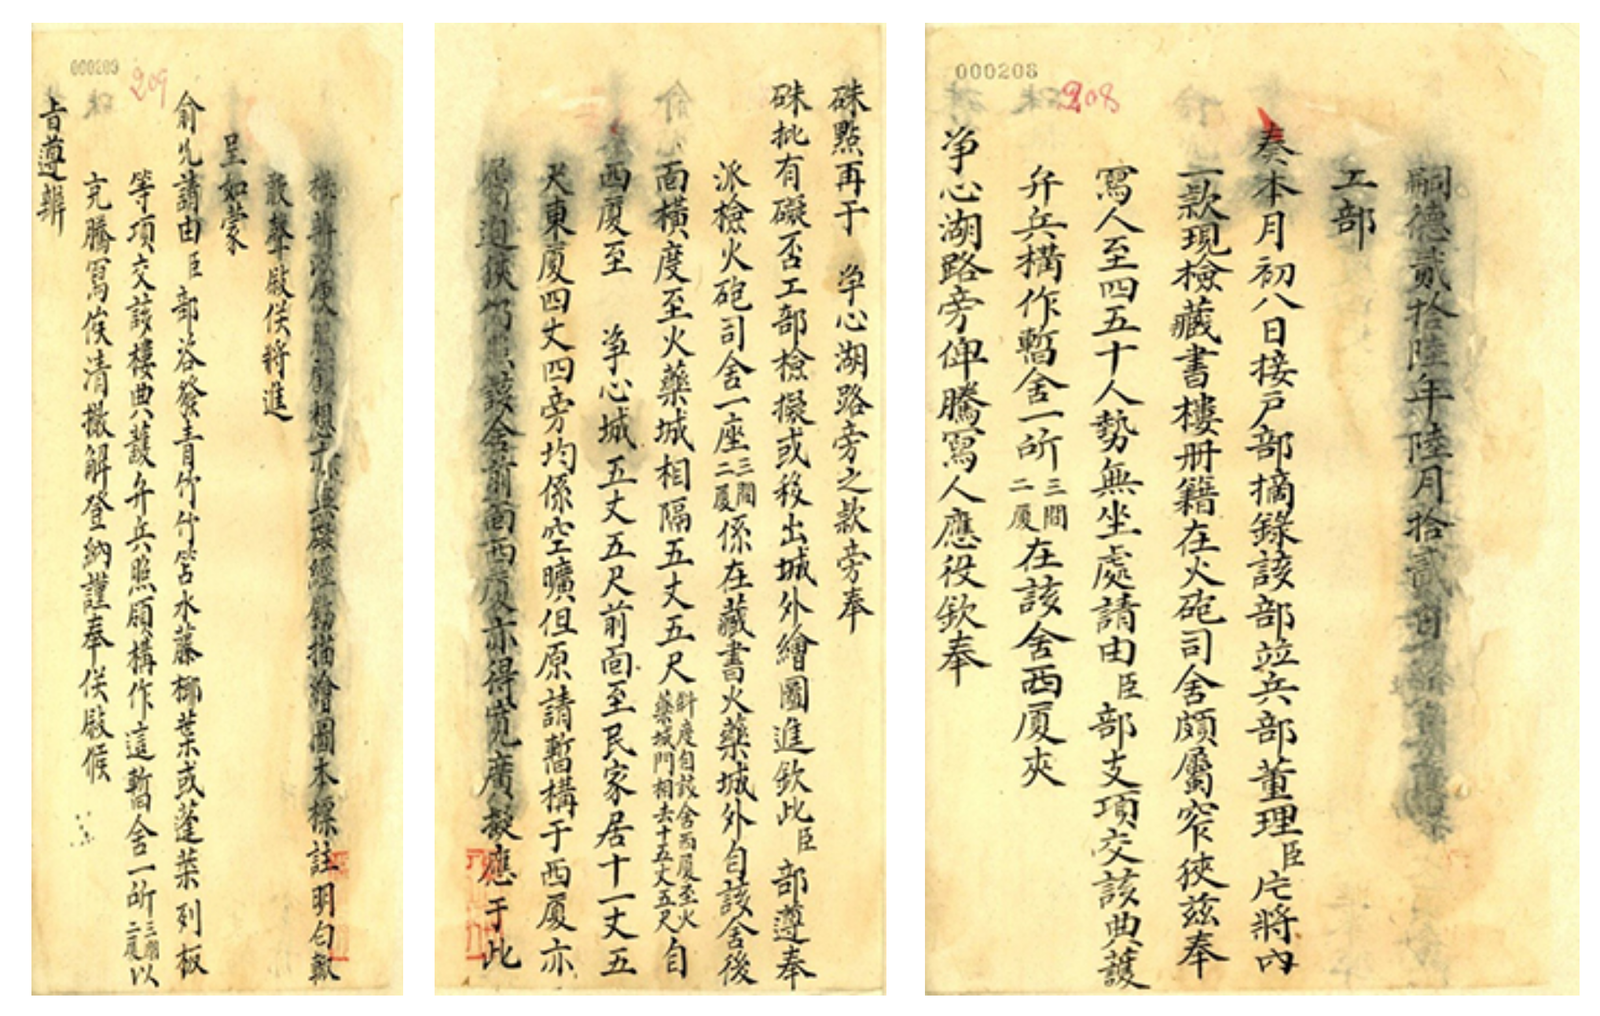 000208
208
嗣德貳拾陸年陸月拾貳日
工部
奏本月初八日接戶部摘錄該部並兵部董理臣庀將內
一款現檢藏書樓冊籍在火砲司舍頗屬窄狹茲奉
寫人至四五十人勢無坐處請由臣部支項交該典護
弁兵搆作暫舍一所三間二厦在該舍西厦夾
淨心湖路旁俾騰寫人應役欽奉
硃點再于 淨心湖路旁之款旁奉
硃批有礙否工部檢擬或移出城外繪圖進欽此臣部遵奉
派檢火砲司舍一座三間二厦係在藏書火藥城外自該舍後
面橫度至火藥城相隔五丈五尺斜度自該舍西厦至火藥城門相去十五丈五尺自
西厦至 淨心城五丈五尺前面至民家居十一丈五
尺東厦四丈四旁均係空曠但原請暫構于西厦亦
屬迫狹仍照該舍前面西厦亦得寬廣擬應于此
000209
209
構辦以便照顧想亦無礙經飭描繪圖本標註明白獻
敢聲敍俟將進
呈如蒙
俞允請由臣部咨發青竹竹笘水藤椰葉或蓬葉列板
等項交該樓典護弁兵照願構作這暫舍一所三間二厦以
充騰寫俟清撤解登納謹奉俟敍候
旨遵辦